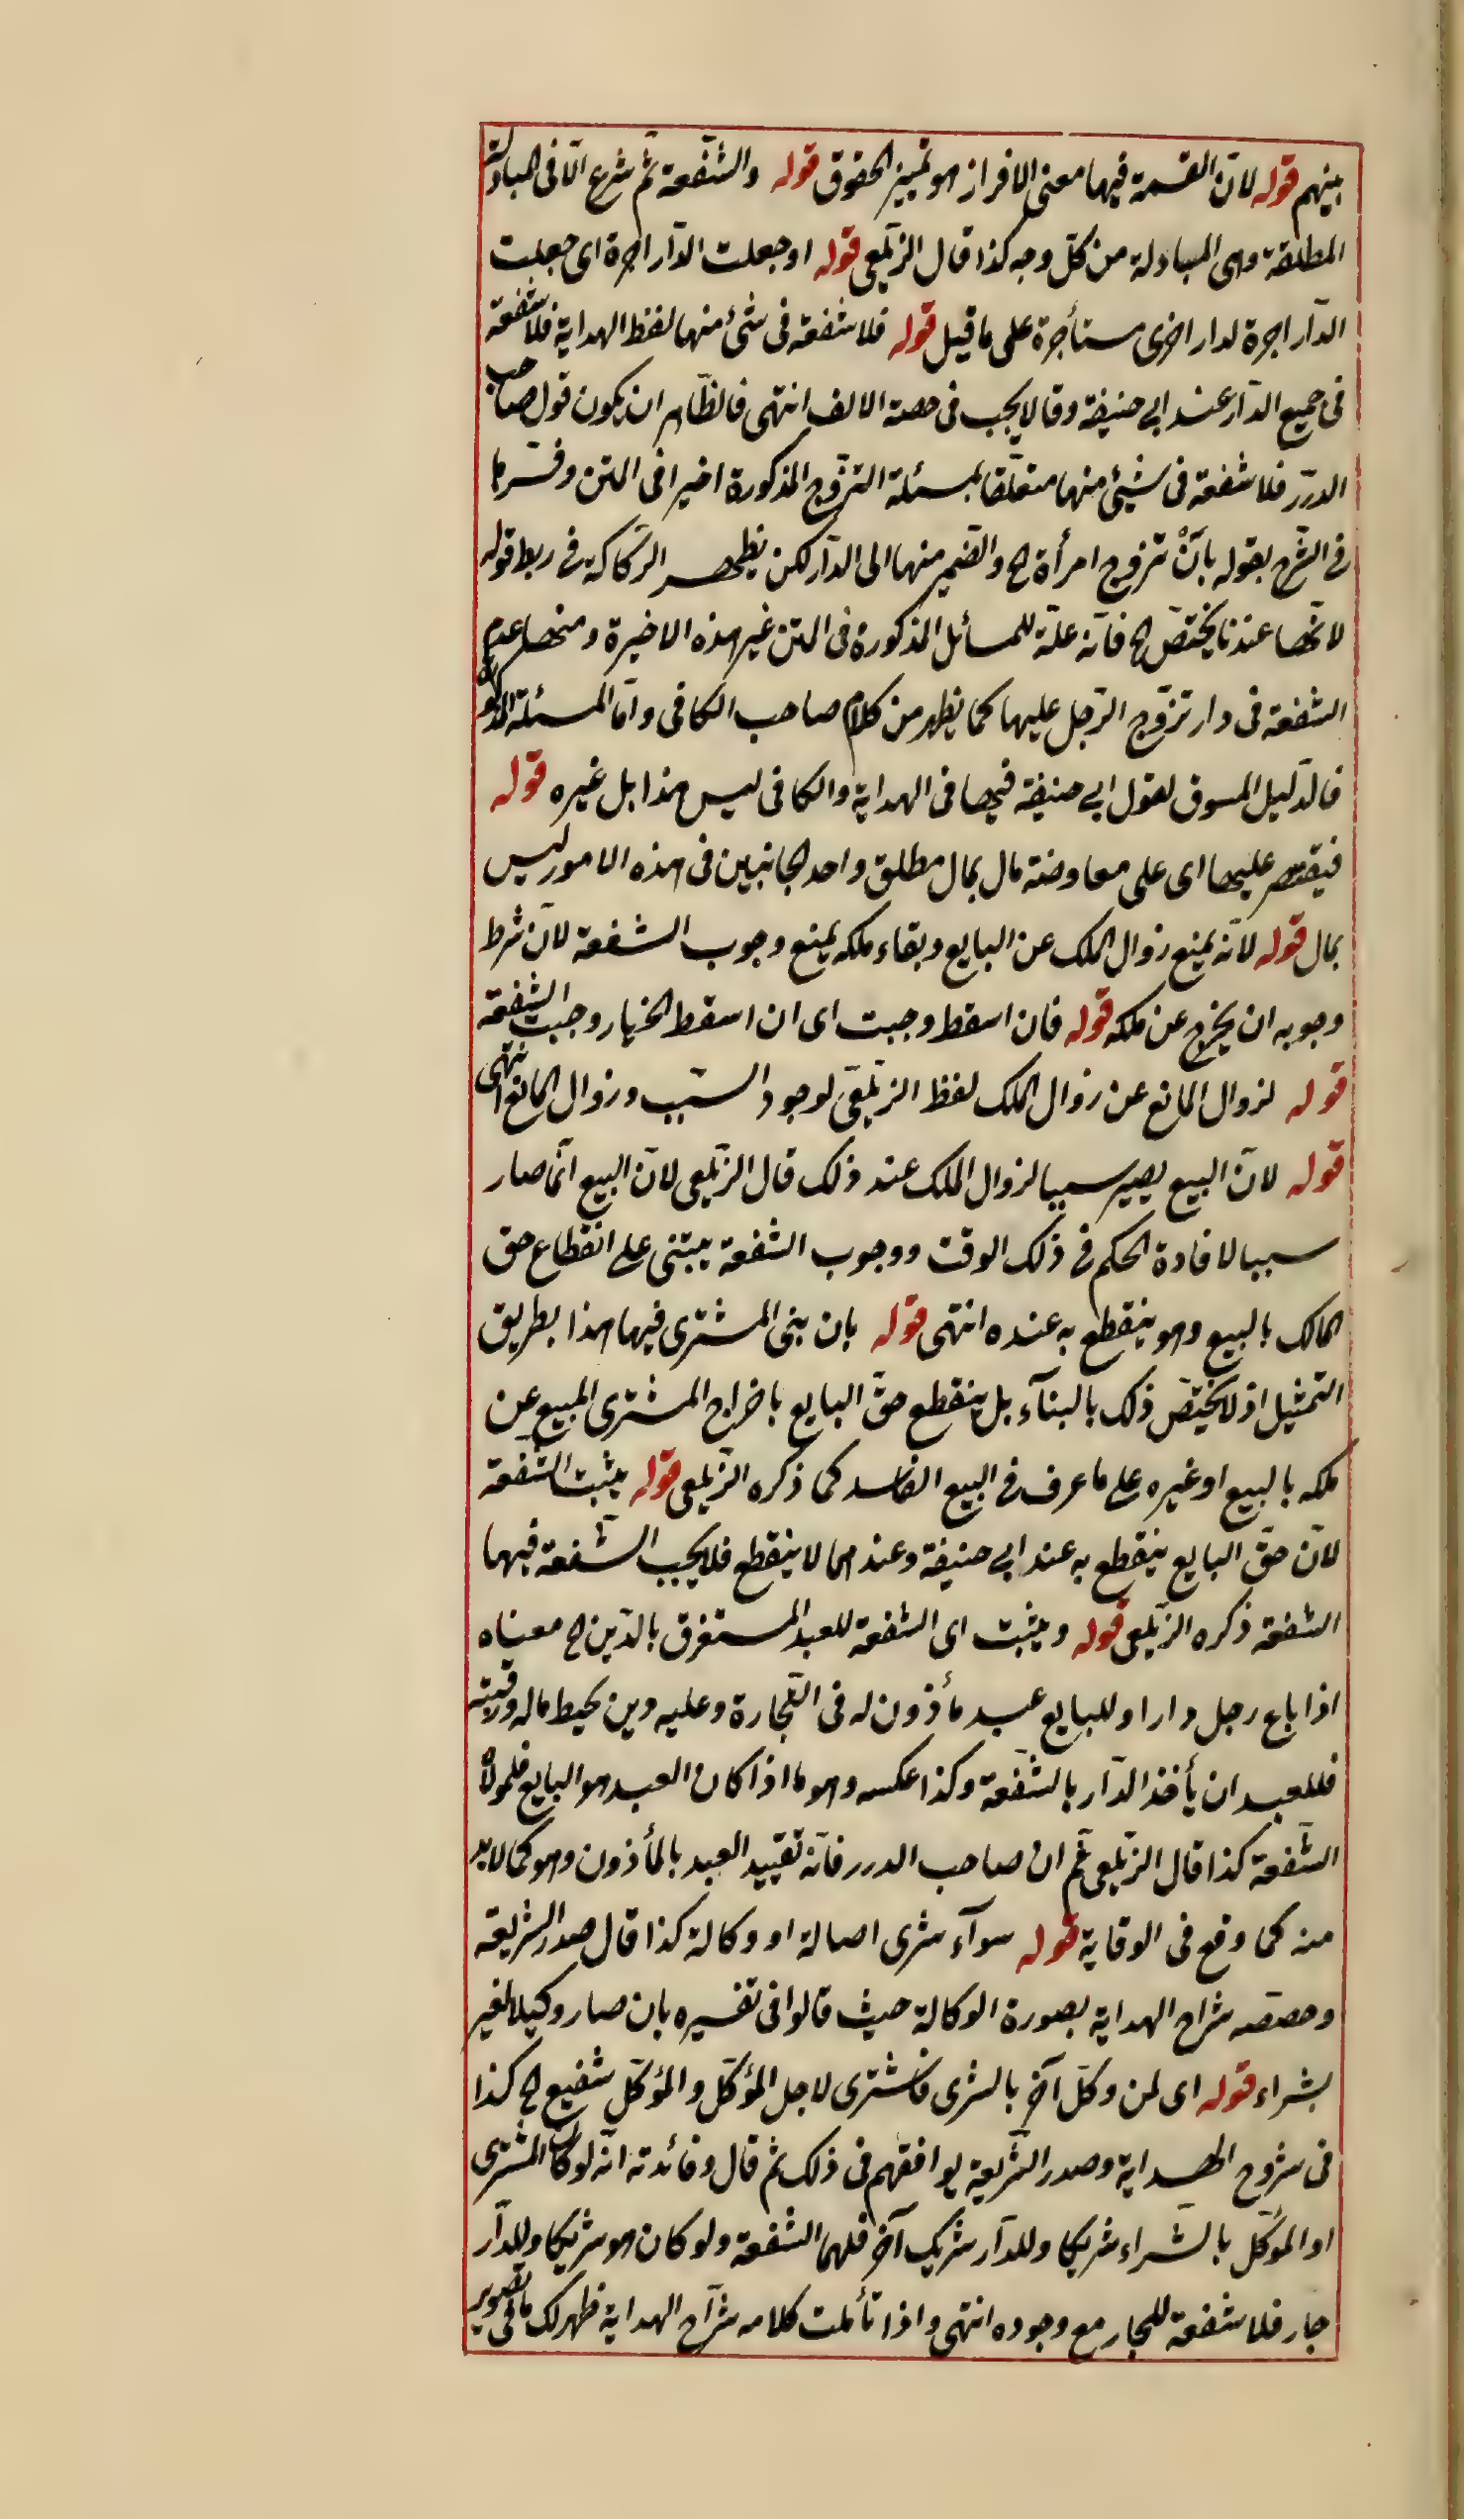 بينهم قوله لانّ القسمة فيها معنى الافراز هو تمييز الحقوق قوله والشّفعة ثم شرع الّا فى المبادلة
المطلقة وهى المبادلة من كلّ وجه كذا قال الزيلعى قوله او جعلت الدّار اجرة اى جعلت
الدّار اجرة لدار اخرى مستأجرة على ما قيل قوله فلا شفعة فى شئ منها لفظ الهداية فلا شفعة
فى جميع الدّار عند ابى حنيفة وقالا يجب فى حصة الالف انتهى فالظّاهر ان يكون قول صاحب
الدرر فلا شفعة فى شيئ منها متعلّقا بمسئلة التزوّج المذكورة اخيرا فى المتن وفسّرها
فى الشّرح بقوله بانْ تزوج امرأة الخ والضمير منها الى الدّار لكن يظهر الرّكاكة فى ربط قوله
لانّها عندنا يختصّ الخ فانّه علّة للمسائل المذكورة فى المتن غير هذه الاخيرة ومنها عدم
الشفعة فى دار تزوّج الرّجل عليها كما يظهر من كلام صاحب الكافى وامّا المسئلة المذكورة
فالدّليل المسوق لقول ابى حنيفة فيها فى الهداية والكافى ليس هذا بل غيره قوله
فيقتصر عليها اى على معاوضة مال بمال مطلق واحد الجانبين فى هذه الامور ليس
بمال قوله لانّه يمنع زوال الملك عن البايع وبقاء ملكه يمنع وجوب الشفعة لانّ شرط
وجوبه ان يخرج عن ملكه قوله فان اسقط وجبت اى ان اسقط الخيار وجبت الشفعة
قوله لزوال المانع عن زوال الملك لفظ الزيلعىّ لوجود السّبب وزوال المانع انتهى
قوله لانّ البيع يصير سببا لزوال الملك عند ذلك قال الزّيلعى لانّ البيع انّما صار
سببا لافادة الحكم فى ذلك الوقت ووجوب الشفعة يبتنى على انقطاع حق
المالك بالبيع وهو ينقطع به عنده انتهى قوله بان بنى المشترى فيها هذا بطريق
التمثيل اذ لا يختصّ ذلك بالبنآء بل ينقطع حقّ البايع باخراج المشترى المبيع عن
ملكه بالبيع او غيره على ما عرف فى البيع الفاسد كما ذكره الزّيلعى قوله يثبت الشّفعة
لانّ حقّ البايع ينقطع به عند ابى حنيفة وعندهما لا ينقطع فلا يجب الشّفعة فيها
الشفعة ذكره الزيلعى قوله ويثبت اى الشفعة للعبد المستغرق بالدّين الخ معناه
اذا باع رجل دارا وللبايع عبد مأذون له فى التّجارة وعليه دين يحيط ماله ورقبته
فللعبد ان يأخذ الدّار بالشّفعة وكذا عكسه وهو ما اذا كان العبد هو البايع فلمولاه
الشّفعة كذا قال الزّيلعى ثم ان صاحب الدرر فاته تقييد العبد بالمأذون وهو كما لا بد
منه كما وقع فى الوقاية قوله سوآء شرى اصالة او وكالة كذا قال صدر الشريعة
وخصّصه شراح الهداية بصورة الوكالة حيث قالوا فى تفسيره بان صار وكيلا لغير
بشراء قوله اى لمن وكّل آخر بالشرى فاشترى لاجل المؤكّل والمؤكّل شفيع الخ كذا
فى شروح الهداية وصدر الشّريعة يوافقهم فى ذلك ثم قال وفائدته انّه لو كان المشترى
او المؤكّل بالشراء شريكا وللدّار شريك آخر فلهما الشفعة ولو كان هو شريكا وللدّار
جار فلا شفعة للجار مع وجوده انتهى واذا تأملت كلامه شرّاح الهداية ظهر لك ما فى تصوير